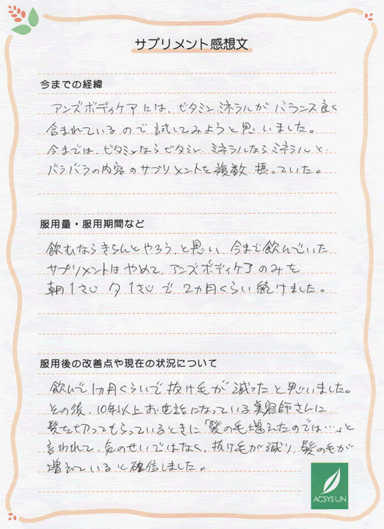 サプリメント感想文
今までの経緯
アンズボディケアには、ビタミン ミネラルが バランス良く
含まれているので 試してみようと思いました。
今までは、ビタミンならビタミン ミネラルならミネラルと
バラバラの内容のサプリメントを複数 摂っていた。
服用量・服用期間など
飲むなら きちんとやろう、と思い、今まで飲んでいた
サプリメントは やめて、アンズボディケアのみを
朝1さじ 夕1さじで 2ヵ月くらい続けました。
服用後の改善点や現在の状況について
飲んで1ヵ月くらいで 抜け毛が 減ったと思いました。
その後、10年以上お世話になっている美容師さんに
髪を切ってもらっているときに「髪の毛増えたのでは…」と
言われて、気のせいではなく、抜け毛が減り、髪の毛が
増えていると確信しました。
ACSYSUN